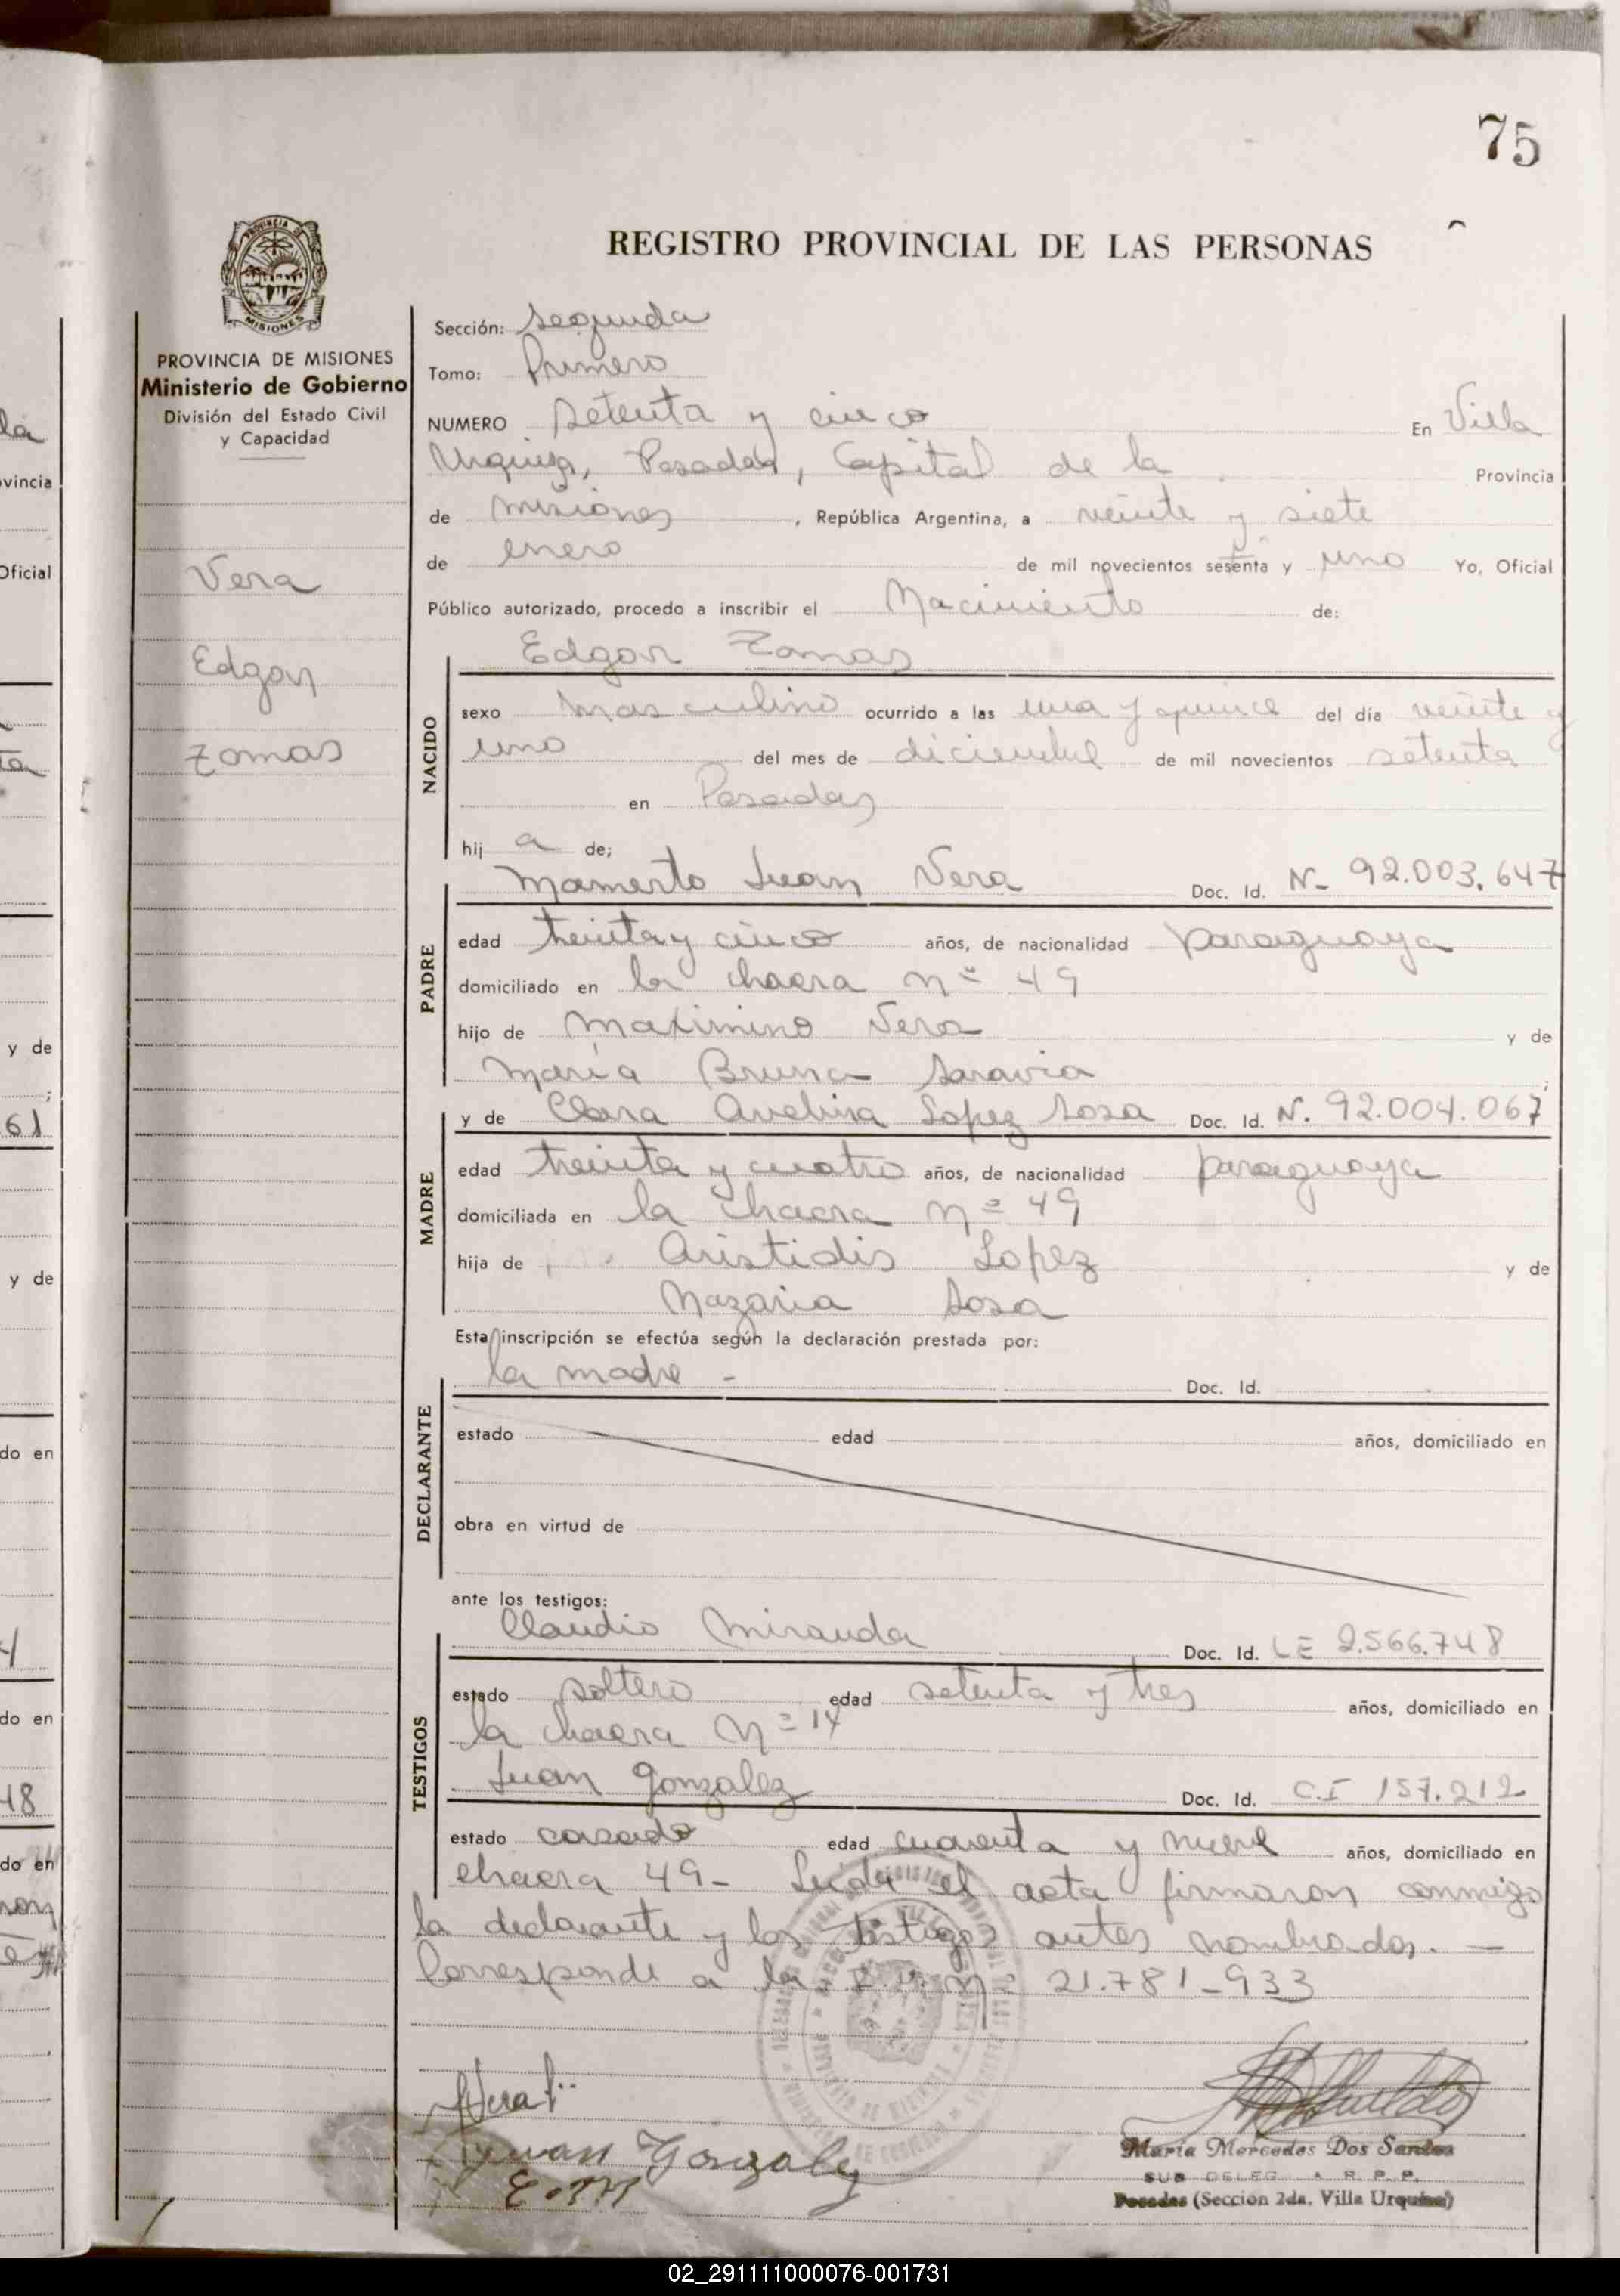 75
REGISTRO PROVINCIAL DE LAS PERSONAS
PROVINCIA DE MISIONES
Ministerio de Gobierno
División del Estado Civil
y Capacidad
Vera
Edgar
Zomas
Sección: Segunda
Tomo: Primero
NUMERO setenta y cinco En Villa
Urquiza, Posadas, Capital de la Provincia
de misiones, República Argentina, a veinte y siete
de enero de mil novecientos sesenta y uno Yo, Oficial
Público autorizado, procedo a inscribir el Nacimiento de:
Edgar Zomas
NACIDO
sexo masculino ocurrido a las una y quince del día veinte y
uno del mes de diciembre de mil novecientos setenta
en Posadas
hij a de;
Mamerto Juan Vera Doc. Id. N- 92.003.647
PADRE
edad treinta y cinco años, de nacionalidad paraguaya
domiciliado en la chacra nº 49
hijo de Maximino Vera y de
María Bruna Saravia;
y de Clara Avelina Lopez Sosa Doc. Id. N. 92.004.067
MADRE
edad treinta y cuatro años, de nacionalidad paraguaya
domiciliada en la chacra nº 49
hija de Aristidis Lopez y de
Nazaria Sosa
Esta inscripción se efectúa según la declaración prestada por:
la madre - Doc. Id.
DECLARANTE
estado edad años, domiciliado en
obra en virtud de
ante los testigos:
Claudio Miranda Doc. Id. LE 2.566.748
TESTIGOS
estado soltero edad setenta y tres años, domiciliado en
la chacra Nº 14
Juan Gonzalez Doc. Id. C.I 157.212
estado casado edad cuarenta y nueve años, domiciliado en
chacra 49- Leida el acta firmaron conmigo
la declarante y los testigos antes nombrados. —
Corresponde a la nº 21.781-933
Juan Gonzalez
Maria Mercedes Dos Santos
SUB DELEG R. P. P.
Posadas (Seccion 2da. Villa Urquiza)
02_291111000076-001731